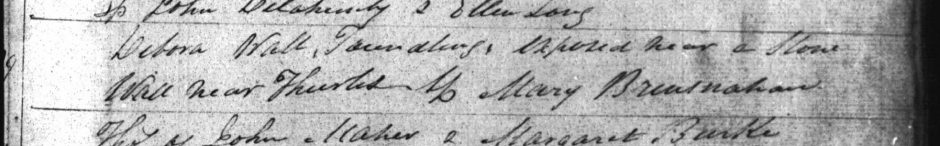 Sp John Delahunty & Ellen Long
Debora Wall, Foundling, exposed near a Stone
Wall near Thurles Sp Mary Bresnahan
Ths of John Maher & Margaret Burke